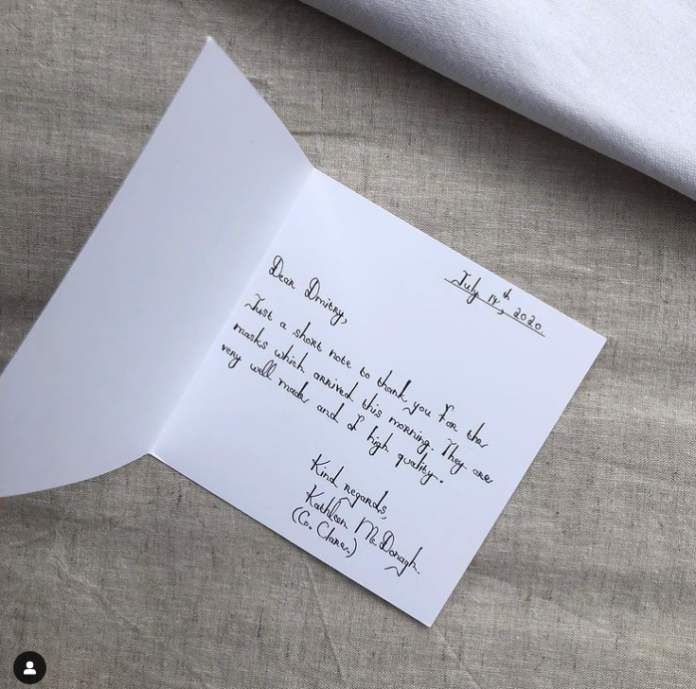 July 14th, 2020.
Dear Dmitry,
Just a short note to thank you for the
masks which arrived this morning. They are
very well made and I high quality.
Kind regards,
Kathleen McDonagh.
(Co. Clare.)